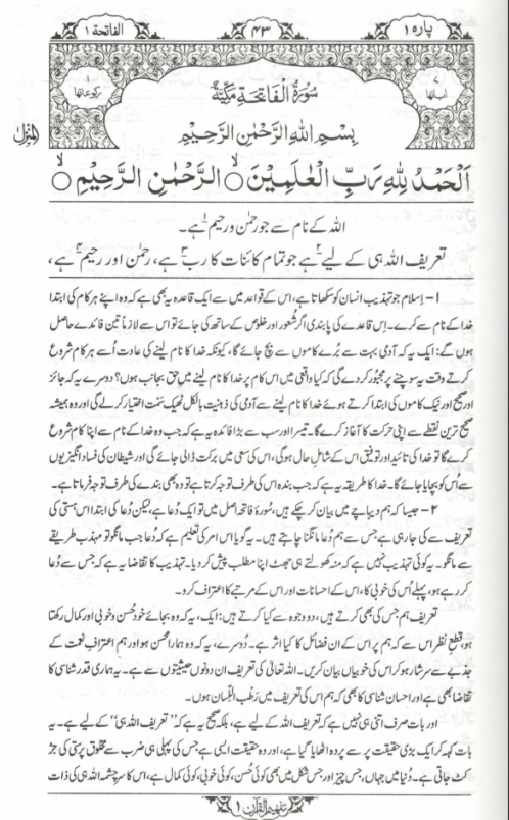 پارہ ۱
۴۳
الفاتحۃ ۱
۷
اٰیاتہا
سُوْرَۃُ الْفَاتِحَۃِ مَکِّیَّۃٌ
۱
رکوعاتہا
بِسْمِ اللّٰہِ الرَّحْمٰنِ الرَّحِیْمِ
المنزل
اَلْحَمْدُ لِلّٰہِ رَبِّ الْعٰلَمِیْنَ ○ الرَّحْمٰنِ الرَّحِیْمِ ○
اللہ کے نام سے جو رحمٰن و رحیم ہے۔
تعریف اللہ ہی کے لیے ہے جو تمام کائنات کا رب ہے، رحمٰن اور رحیم ہے،
۱- اِسلام جو تہذیب انسان کو سکھاتا ہے، اس کے قواعد میں سے ایک قاعدہ یہ بھی ہے کہ وہ اپنے ہر کام کی ابتدا
خدا کے نام سے کرے۔ اِس قاعدے کی پابندی اگر شعور اور خلوص کے ساتھ کی جائے تو اس سے لازماً تین فائدے حاصل
ہوں گے: ایک یہ کہ آدمی بہت سے بُرے کاموں سے بچ جائے گا، کیونکہ خدا کا نام لینے کی عادت اُسے ہر کام شروع
کرتے وقت یہ سوچنے پر مجبور کر دے گی کہ کیا واقعی میں اس کام پر خدا کا نام لینے میں حق بجانب ہوں؟ دوسرے یہ کہ جائز
اور صحیح اور نیک کاموں کی ابتدا کرتے ہوئے خدا کا نام لینے سے آدمی کی ذہنیت بالکل ٹھیک سَمت اختیار کر لے گی اور وہ ہمیشہ
صحیح ترین نقطے سے اپنی حرکت کا آغاز کرے گا۔ تیسرا اور سب سے بڑا فائدہ یہ ہے کہ جب وہ خدا کے نام سے اپنا کام شروع
کرے گا تو خدا کی تائید اور توفیق اس کے شاملِ حال ہو گی، اس کی سعی میں برکت ڈالی جائے گی اور شیطان کی فساد انگیزیوں
سے اُس کو بچایا جائے گا۔ خدا کا طریقہ یہ ہے کہ جب بندہ اس کی طرف توجہ کرتا ہے تو وہ بھی بندے کی طرف توجہ فرماتا ہے۔
۲- جیسا کہ ہم دیباچے میں بیان کر چکے ہیں، سُورۂ فاتحہ اصل میں تو ایک دُعا ہے، لیکن دُعا کی ابتدا اس ہستی کی
تعریف سے کی جا رہی ہے جس سے ہم دُعا مانگنا چاہتے ہیں۔ یہ گویا اس امر کی تعلیم ہے کہ دُعا جب مانگو تو مہذب طریقے
سے مانگو۔ یہ کوئی تہذیب نہیں ہے کہ منہ کھولتے ہی جھٹ اپنا مطلب پیش کر دیا۔ تہذیب کا تقاضا یہ ہے کہ جس سے دُعا
کر رہے ہو، پہلے اُس کی خوبی کا، اس کے احسانات اور اس کے مرتبے کا اعتراف کرو۔
تعریف ہم جس کی بھی کرتے ہیں، دو وجوہ سے کیا کرتے ہیں: ایک، یہ کہ وہ بجائے خود حُسن و خوبی اور کمال رکھتا
ہو، قطعِ نظر اس سے کہ ہم پر اس کے ان فضائل کا کیا اثر ہے۔ دُوسرے، یہ کہ وہ ہمارا محسن ہو اور ہم اعترافِ نعمت کے
جذبے سے سرشار ہو کر اس کی خوبیاں بیان کریں۔ اللہ تعالٰی کی تعریف ان دونوں حیثیتوں سے ہے۔ یہ ہماری قدر شناسی کا
تقاضا بھی ہے اور احسان شناسی کا بھی کہ ہم اس کی تعریف میں رَطبُ اللِّسان ہوں۔
اور بات صرف اتنی ہی نہیں ہے کہ تعریف اللہ کے لیے ہے، بلکہ صحیح یہ ہے کہ ”تعریف اللہ ہی“ کے لیے ہے۔ یہ
بات کہہ کر ایک بڑی حقیقت پر سے پردہ اٹھایا گیا ہے، اور وہ حقیقت ایسی ہے جس کی پہلی ہی ضرب سے مخلوق پرستی کی جڑ
کٹ جاتی ہے۔ دُنیا میں جہاں، جس چیز اور جس شکل میں بھی کوئی حُسن، کوئی خوبی، کوئی کمال ہے، اس کا سرچشمہ اللہ ہی کی ذات
تفہیم القرآن ۱